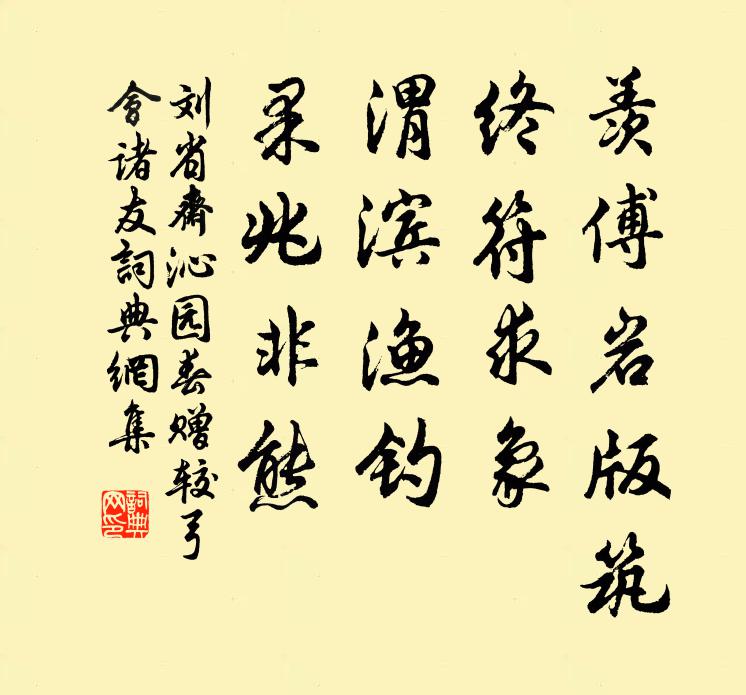 羡傅岩版筑
终符求象
渭滨渔钓
果兆非熊
刘省斋沁园春赠较弓
會诸友詞典網集
詞典网印